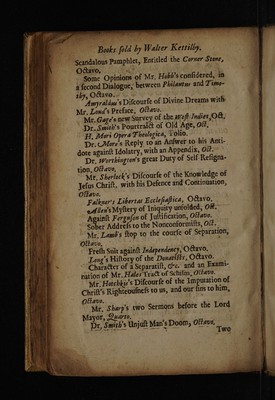 Books sold by Walter Kettilby.
Scandalous Pamphlet, Entitled the Corner Stone,
Octavo.
Some Opinions of Mr. Hobb's considered, in
a second Dialogue, between Philautus and Timo-
thy, Octavo.
Amyraldus's Discourse of Divine Dreams with
Mr. Loud's Preface, Octavo.
Mr. Gage's new Survey of the West-Indies, Oct.
Dr. Smith's Pourtraict of Old Age, Oct.
H. Mori Opera Theologica, Folio.
Dr. More's Reply to an Answer to his Anti-
dote against Idolatry, with an Appendix, Oct.
Dr. Worthington's great Duty of Self Resigna-
tion, Octavo.
Mr. Sherlock's Discourse of the Knowledge of
Jesus Christ, with his Defence and Continuation,
Octavo.
Falkner's Libertas Ecclesiastica, Octavo.
Allen's Mystery of Iniquity unfolded, Oct.
Against Ferguson of Justification, Octavo.
Sober Address to the Nonconformists, Oct.
Mr. Lamb's stop to the course of Separation,
Octavo,
Fresh Suit against Independency, Octavo.
Long's History of the Donatists, Octavo.
Character of a Separatist, &c. and an Exami-
nation of Mr. Hales Tract of Schism, Octavo.
Mr. Hotchkis's Discourse of the Imputation of
Christ's Righteousness to us, and our sins to him,
Octavo.
Mr. Sharp's two Sermons before the Lord
Mayor, Quarto.
Dr. Smith's Unjust Man's Doom, Octavo.
Two